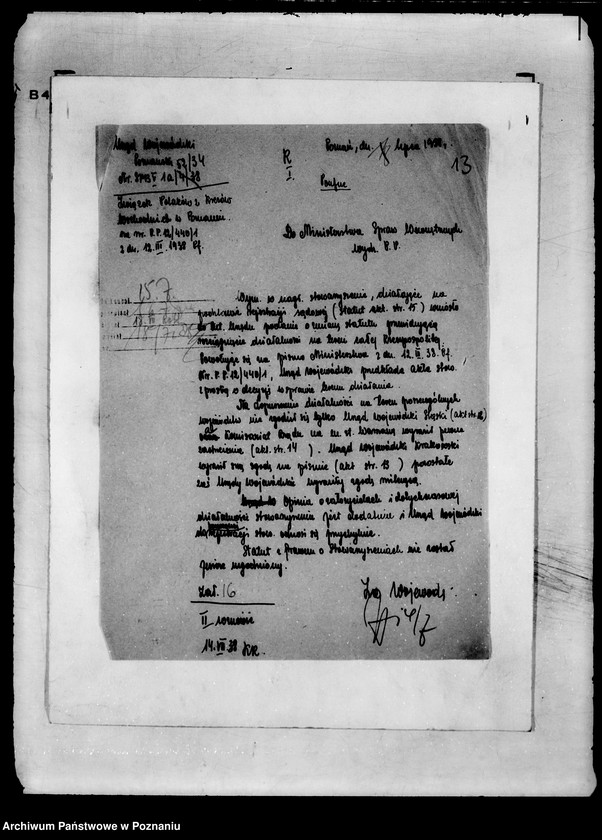 B4
Urząd Wojewódzki
Poznański 52/34
Nr.
Związek Polaków z Kresów
Wschodnich w Poznaniu.
na nr. P.P. 12/440/1
z dn. 12.III 1938 Pf.
R
I
Poznań, dn. lipca 1938 r.
13
Poufne
Do Ministerstwa Spraw Wewnętrznych
Wydz. P. P.
15 7.
Wym. w nagł. stowarzyszenie, działające na
podstawie rejestracji sądowej (Statut akt. str. 15) wniosło
do tut. Urzędu podanie o zmianę statutu przewidującą
rozciągnięcie działalności na teren całej Rzeczypospolitej.
Powołując się na pismo Ministerstwa z dn. 12.III.38. Pf.
Nr. P.P. 12/440/1, Urząd Wojewódzki przedkłada akta stow.
z prośbą o decyzję w sprawie terenu działania.
Na dopuszczenie działalności na teren poszczególnych
województw nie zgodził się tylko Urząd Wojewódzki Śląski (akt str. 12)
Komisariat Rządu na m. st. Warszawę wyraził pewne
zastrzeżenia (akt. str. 14). Urząd Wojewódzki Krakowski
wyraził swą zgodę na piśmie (akt str. 13) pozostałe
zaś Urzędy Wojewódzkie wyraziły zgodę milczącą.
Opinia o założycielach i dotychczasowej
działalności stowarzyszenia jest dodatnia i Urząd Wojewódzki
do rejestracji stow. odnosi się przychylnie.
Statut z prawem o Stowarzyszeniach nie został
jeszcze uzgodniony.
Zał. 16
Za Wojewodę:
II
14.VII 38
Archiwum Państwowe w Poznaniu